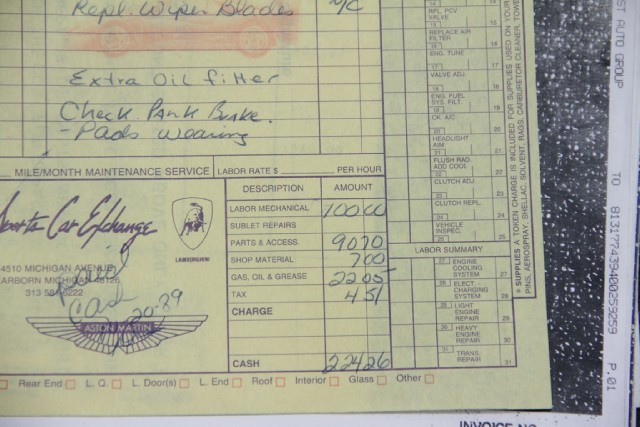 Repl. Wiper Blades N/C
Extra Oil filter
Check Park Brake.
- Pads wearing
MILE/MONTH MAINTENANCE SERVICE LABOR RATE $ PER HOUR
DESCRIPTION AMOUNT
LABOR MECHANICAL 100 00
SUBLET REPAIRS
PARTS & ACCESS. 90 70
SHOP MATERIAL 7 00
GAS, OIL & GREASE 22 05
TAX 4 51
CHARGE
CASH 224 26
Sports Car Exchange
LAMBORGHINI
4510 MICHIGAN AVENUE
DEARBORN MICHIGAN 48126
Paid
Cash
ASTON MARTIN
Rear End L. Q. L. Door(s) L. End Roof Interior Glass Other
14 RPL. PCV VALVE
15 REPLACE AIR FILTER 15
16 ENG. TUNE 16
17 VALVE ADJ. 17
18 ENG. FUEL SYS. FILT. 18
19 CK. A/C 19
20 HEADLIGHT AIM 20
21 FLUSH RAD. ADD COOL 21
22 CLUTCH ADJ. 22
23 CLUTCH REPL. 23
24 VEHICLE INSPEC. 24
25
LABOR SUMMARY
27 ENGINE COOLING SYSTEM 27
28 ELECT.- CHARGING SYSTEM 28
29 LIGHT ENGINE REPAIR 29
30 HEAVY ENGINE REPAIR 30
31 TRANS. REPAIR 31
* SUPPLIES A TOKEN CHARGE IS INCLUDED FOR SUPPLIES USED ON
PINS, AEROSPRAY, SHELLAC, SOLVENT, RAGS, CARBURETOR CLEANER,
ST AUTO GROUP TO 813177439400259259 P.01
INVOICE NO.